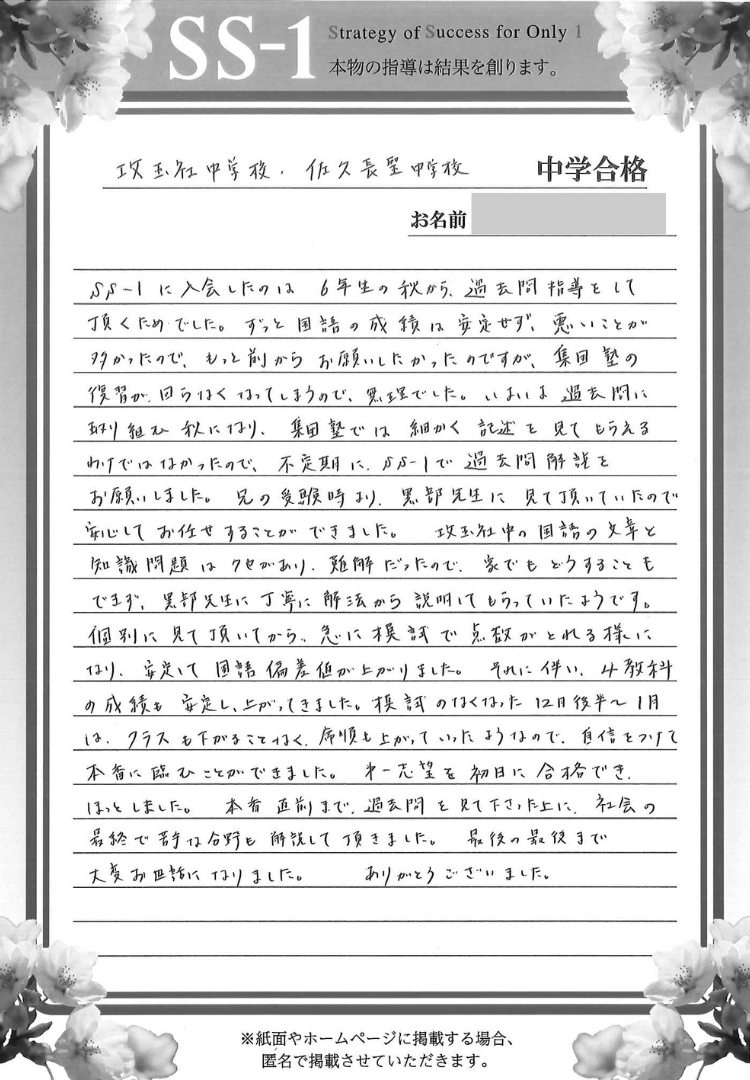 SS-1
Strategy of Success for Only 1
本物の指導は結果を創ります。
攻玉社中学校、佐久長聖中学校
中学合格
お名前
SS-1に入会したのは 6年生の秋から、過去問指導をして
頂くためでした。ずっと国語の成績は安定せず、悪いことが
多かったので、もっと前からお願いしたかったのですが、集団塾の
復習が、回らなくなってしまうので、無理でした。いよいよ過去問に
取り組む秋になり、集団塾では細かく記述を見てもらえる
わけではなかったので、不定期に、SS-1で過去問解説を
お願いしました。兄の受験時より、黒部先生に見て頂いていたので
安心してお任せすることができました。 攻玉社中の国語の文章と
知識問題はクセがあり、難解だったので、家でもどうすることも
できず、黒部先生に丁寧に解法から説明してもらっていたようです。
個別に見て頂いてから、急に模試で点数がとれる様に
なり、安定して国語偏差値が上がりました。それに伴い、4教科
の成績も安定し、上がってきました。模試のなくなった12月後半〜1月
は、クラスも下がることなく、席順も上がっていったようなので、自信をつけて
本番に臨むことができました。 第一志望を初日に合格でき、
ほっとしました。 本番直前まで、過去問を見て下さった上に、社会の
最終で苦手な分野も解説して頂きました。 最後の最後まで
大変お世話になりました。 ありがとうございました。
※紙面やホームページに掲載する場合、
匿名で掲載させていただきます。